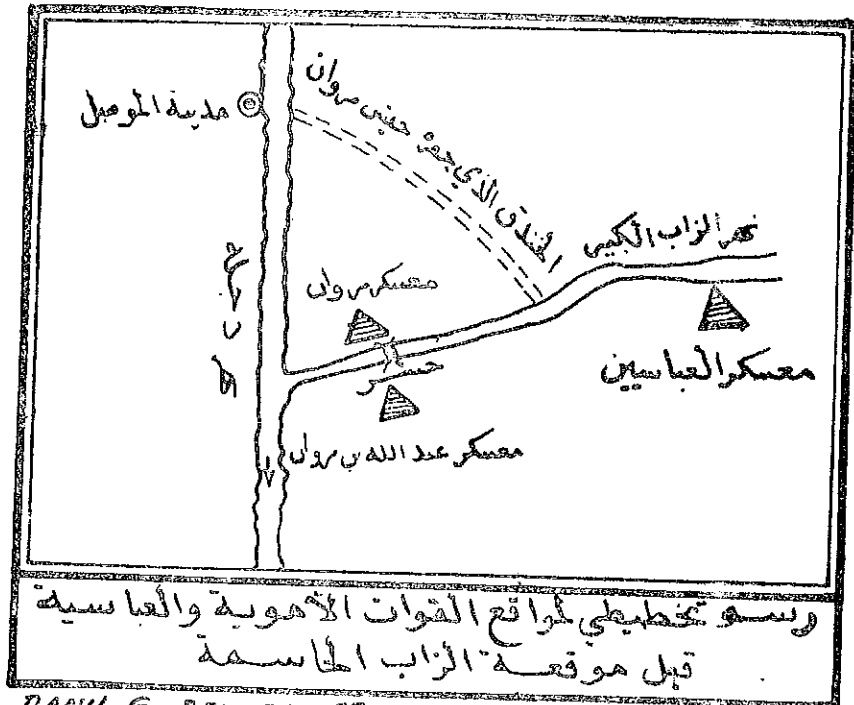 مدينة الموصل
الخندق الذي حفره جيش مروان
نهر الزاب الكبير
دجلة
معسكر مروان
جسر
معسكر العباسيين
معسكر عبد الله بن مروان
رسم تخطيطي لمواقع القوات الأموية والعباسية
قبل موقعة الزاب الحاسمة